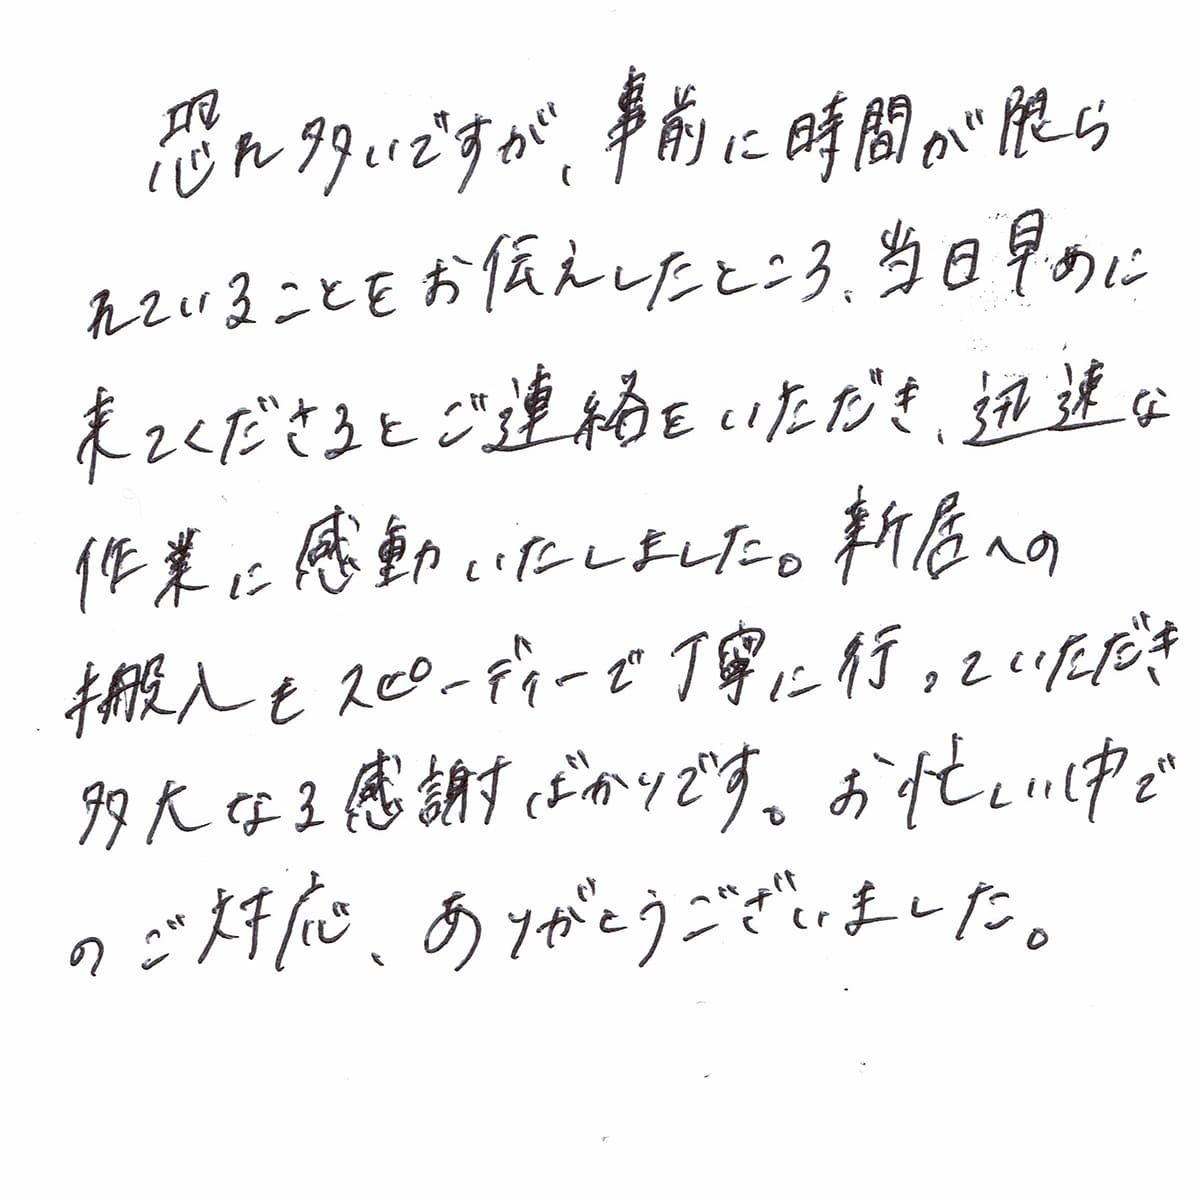 恐れ多いですが、事前に時間が限ら
れていることをお伝えしたところ、当日早めに
来てくださるとご連絡をいただき、迅速な
作業に感動いたしました。新居への
搬入もスピーディーで丁寧に行っていただき
多大なる感謝ばかりです。お忙しい中で
のご対応、ありがとうございました。